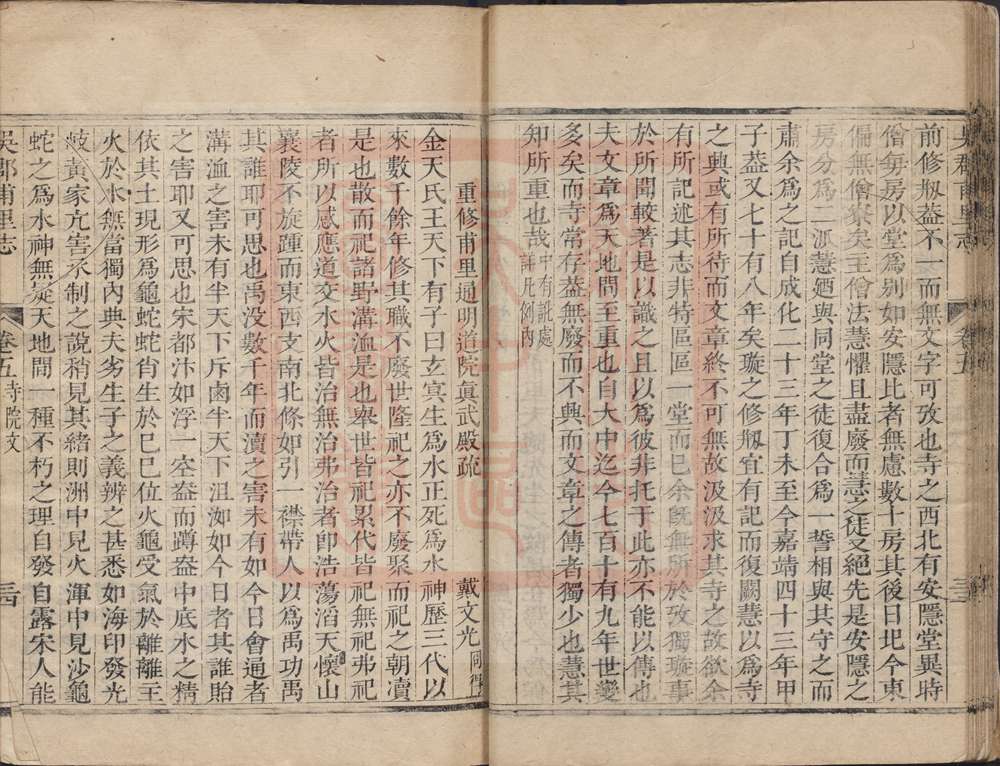 前修剏葢不一而無文字可攷也寺之西北有安隱堂異時
僧每房以堂爲别如安隱比者無慮數十房其後日圮今東
偏無僧寮矣主僧法慧懼且盡廢而慧之徒又絕先是安隱之
房分爲二𣲖慧廼與同堂之徒復合爲一誓相與其守之而
肅余爲之記自成化二十三年丁未至今嘉靖四十三年甲
子葢又七十有八年矣璇之修剏宜有記而復闕慧以爲寺
之興或有所待而文章終不可無故汲汲求其寺之故欲余
有所記述其志非特區區一堂而巳余旣無所於攷獨璇事
於所聞較著是以識之且以爲彼非托于此亦不能以傳也
夫文章爲天地間至重也自大中迄今七百十有九年世變
多矣而寺常存葢無廢而不興而文章之傳者獨少也慧其
知所重也哉中有訛處詳凡例內
重修甫里通明道院眞武殿疏 戴文光
金天氏王天下有子曰玄冥生爲水正死爲水神歷三代以
來數千餘年修其職不廢世隆祀之亦不廢聚而祀之朝瀆
是也散而祀諸野溝洫是也舉世皆祀累代皆祀無祀弗祀
者所以感應道交水火皆治無治弗治者卽浩蕩滔天懷山
襄陵不旋踵而東西支南北條如引一襟帶人以爲禹功禹
其誰耶可思也禹没數千年而瀆之害未有如今日會通者
溝洫之害未有半天下斥鹵半天下沮洳如今日者其誰貽
之害耶又可思也宋都汴如浮一空盎而蹲盎中底水之精
依其土現形爲龜蛇蛇肖生於巳巳位火龜受氣於離離王
火於水無當獨內典大劣生子之義辨之甚悉如海印發光
岐黃家亢害承制之說稍見其緒則洲中見火渾中見沙龜
蛇之爲水神無疑天地間一種不朽之理自發自露宋人能
吳郡甫里志 卷五 寺院文